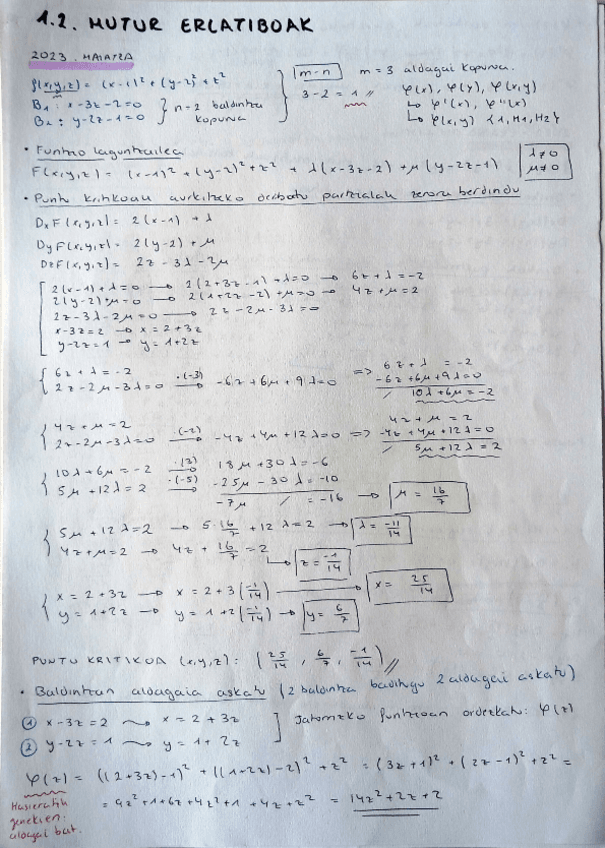 1.2. MUTUR ERLATIBOAK
2023 MAIATZA
f(x,y,z) = (x-1)² + (y-2)² + z²
B₁ : x-3z-2=0
B₂ : y-2z-1=0
n=2 baldintza kopurua
m-n
m = 3 aldagai kopurua.
3-2 = 1 //
φ(x), φ(y), φ(x,y)
↳ φ'(x), φ''(x)
↳ φ(x,y) {1, H1, H2}
• Funtzio laguntzailea
F(x,y,z) = (x-1)² + (y-2)² + z² + λ(x-3z-2) + μ(y-2z-1)
λ≠0
μ≠0
• Puntu kritikoak aurkitzeko deribatu partzialak zerora berdindu
DxF(x,y,z) = 2(x-1) + λ
DyF(x,y,z) = 2(y-2) + μ
DzF(x,y,z) = 2z - 3λ - 2μ
2(x-1)+λ=0 → 2(2+3z-1)+λ=0 → 6z+λ=-2
2(y-2)+μ=0 → 2(1+2z-2)+μ=0 → 4z+μ=2
2z-3λ-2μ=0 → 2z-2μ-3λ=0
x-3z=2 → x=2+3z
y-2z=1 → y=1+2z
6z+λ=-2
2z-2μ-3λ=0 ·(-3) → -6z+6μ+9λ=0 => 6z+λ = -2
-6z+6μ+9λ=0
/ 10λ+6μ=-2
4z+μ=2
2z-2μ-3λ=0 ·(-2) → -4z+4μ+12λ=0 => 4z+μ = 2
-4z+4μ+12λ=0
/ 5μ+12λ=2
10λ+6μ=-2 ·(3) → 18μ+30λ=-6
5μ+12λ=2 ·(-5) → -25μ-30λ=-10
-7μ / = -16 → μ = 16/7
5μ+12λ=2 → 5·16/7 + 12λ=2 → λ = -11/14
4z+μ=2 → 4z + 16/7 = 2 ↳ z = -1/14
x = 2+3z → x = 2+3(-1/14) → x = 25/14
y = 1+2z → y = 1+2(-1/14) → y = 6/7
PUNTU KRITIKOA (x,y,z): (25/14, 6/7, -1/14) //
• Baldintzan aldagaia askatu (2 baldintza baditugu 2 aldagai askatu)
① x-3z=2 → x = 2+3z
② y-2z=1 → y = 1+2z
Jatorrizko funtzioan ordezkatu: φ(z)
φ(z) = ((2+3z)-1)² + ((1+2z)-2)² + z² = (3z+1)² + (2z-1)² + z² =
= 9z²+1+6z+4z²+1+4z+z² = 14z²+2z+2
Hasieratik
genekien:
aldagai bat.